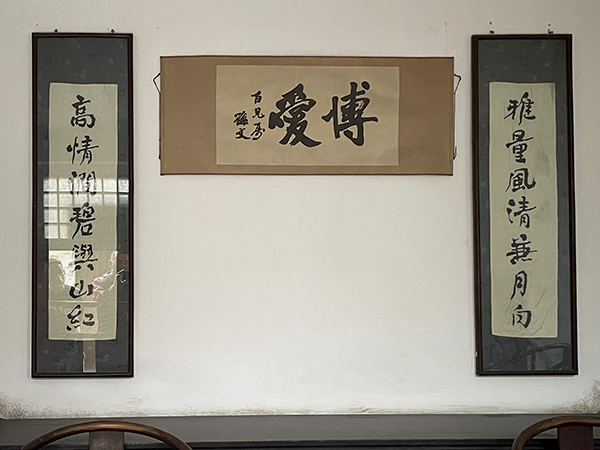 雅量風清兼月白
博愛
百兄
孫文
高情澗碧與山紅